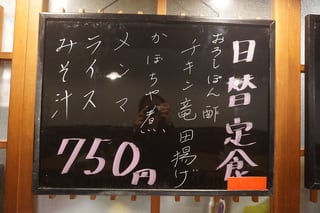 日替定食
おろしぽん酢
チキン竜田揚げ
かぼちゃ煮
メンマ
ライス
みそ汁
750円